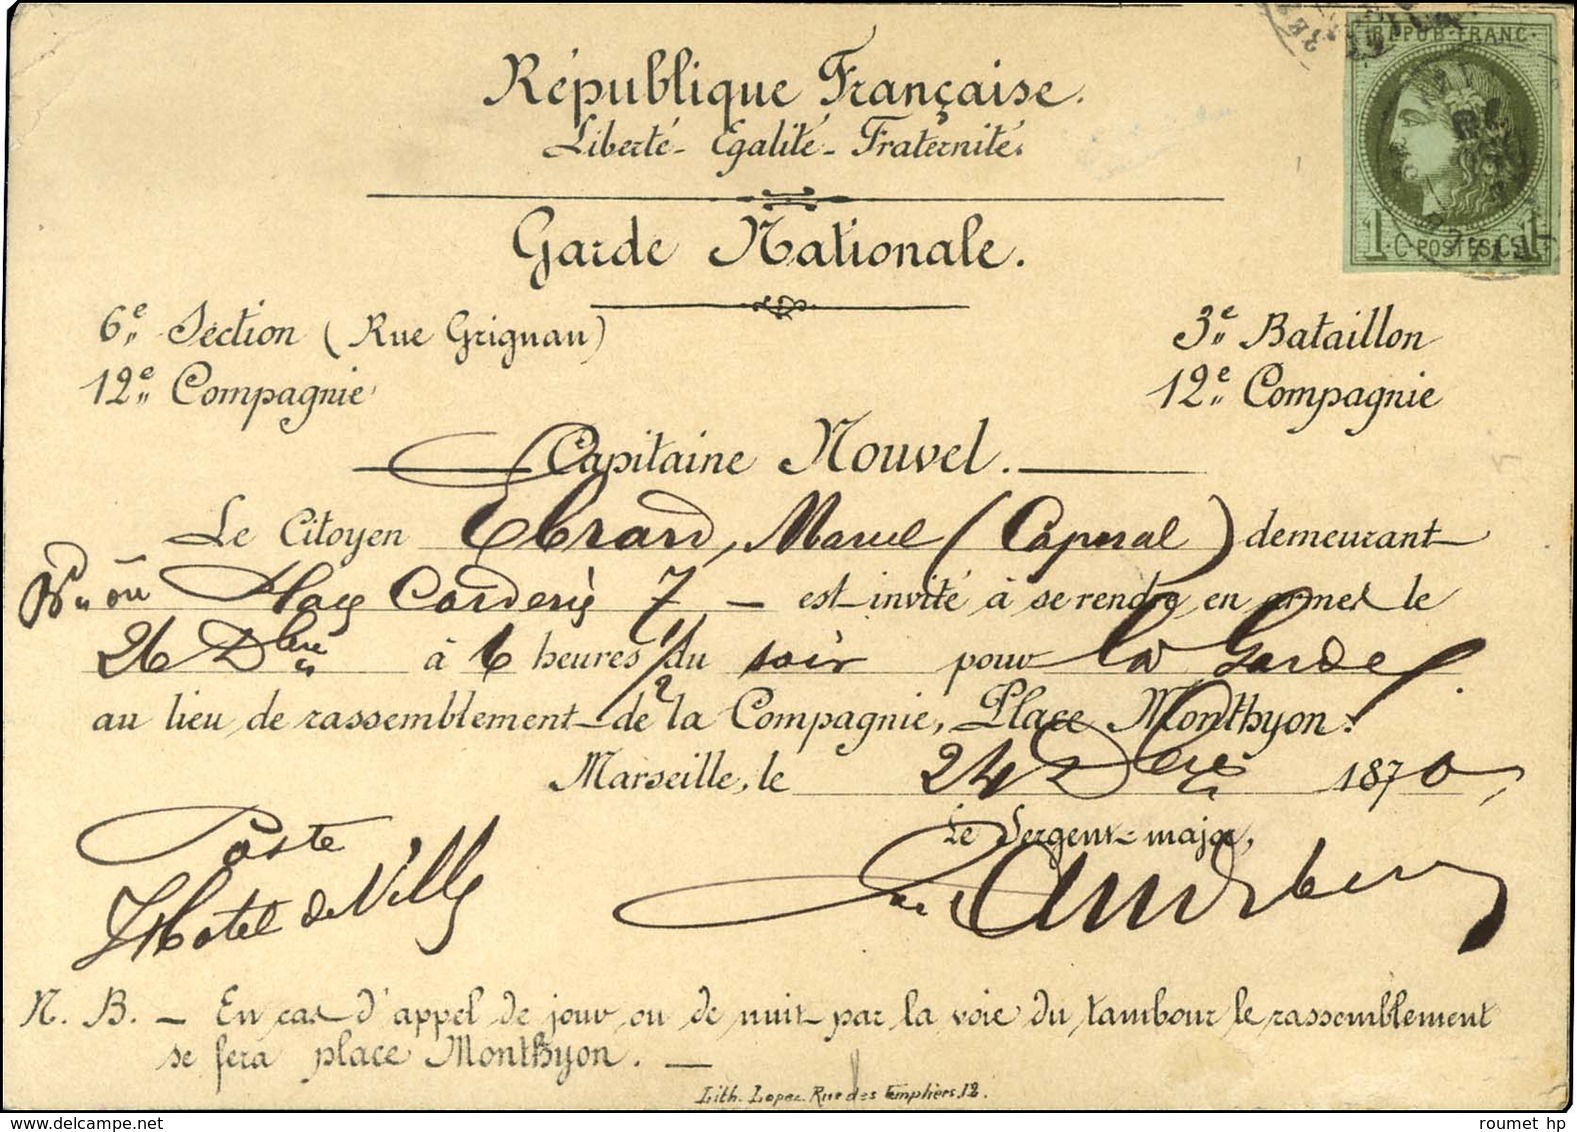 République Française.
Liberté - Egalité - Fraternité.
REPUB·FRANC·
1·C·POSTES·C·1
Garde Nationale.
6e Section (Rue Grignan)
3e Bataillon
12e Compagnie
12e Compagnie
Capitaine Nouvel.
Le Citoyen Ebrard, Marcel (Caporal) demeurant
Place 7 - est invité à se rendre en armes le
26 Dbre à 6 heures 1/2 du soir pour la Garde
au lieu de rassemblement de la Compagnie, Place Monthyon.
Marseille, le 24 Dbre 1870
Le Sergent-major,
Poste
Hotel de Ville
N. B. - En cas d'appel de jour ou de nuit par la voie du tambour le rassemblement
se fera place Monthyon. -
Lith. Lopez Rue des Templiers, 12.
roumet hp